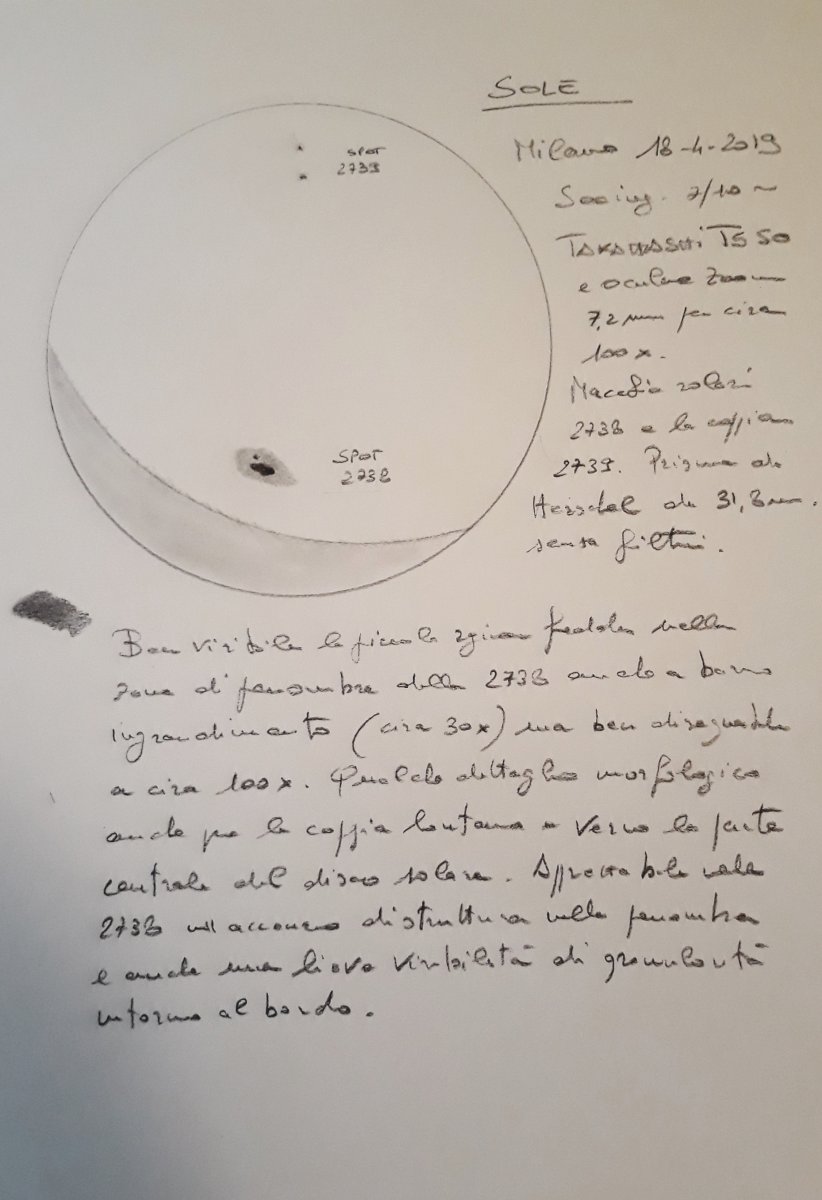 SOLE
Milano 18-4-2019
Seeing. 7/10 ~
TAKAHASHI TS 50
e oculare zoom
7,2 mm per circa
100x.
Macchie solari
2738 e la coppia
2739. Prisma di
Herschel da 31,8 mm.
senza filtri.
SPOT
2739
SPOT
2738
Ben visibile la piccola regione fredda nella
zona di penombra della 2738 anche a basso
ingrandimento (circa 30x) ma ben disegnabile
a circa 100x. Qualche dettaglio morfologico
anche per la coppia lontana e verso la parte
centrale del disco solare. Apprezzabile nella
2738 un accenno di struttura nella penombra
e anche una lieve visibilità di granularità
intorno al bordo.